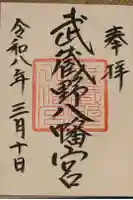 奉拝
武蔵野八幡宮
令和八年 三月十日